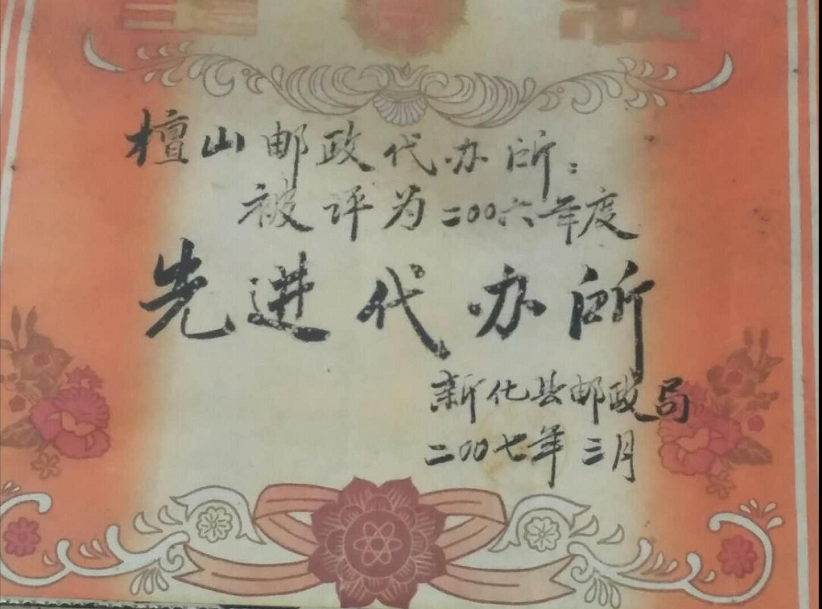 檀山邮政代办所：
被评为二00六年度
先进代办所
新化县邮政局
二00七年三月